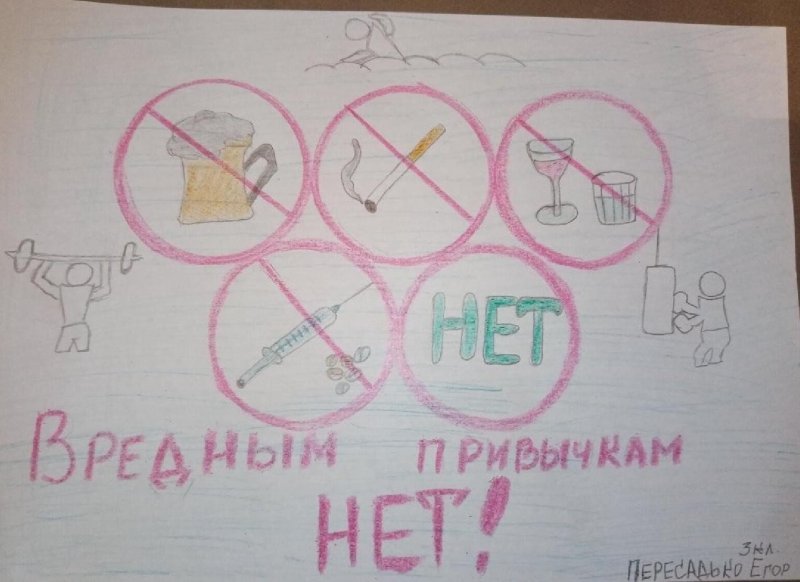 НЕТ
ВРЕДНЫМ ПРИВЫЧКАМ
НЕТ!
3 кл.
ПЕРЕСАДЬКО ЕГОР